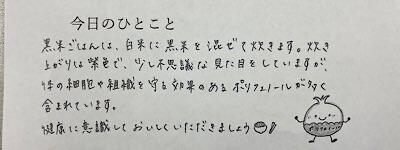 今日のひとこと
黒米ごはんは、白米に黒米を混ぜて炊きます。炊き
上がりは紫色で、少し不思議な見た目をしていますが、
体の細胞や組織を守る効果のあるポリフェノールが多く
含まれています。
健康に意識しておいしくいただきましょう
ポリフェノール